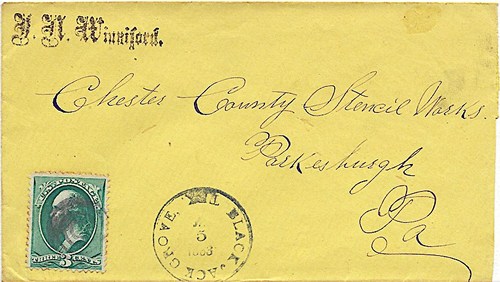 J. N. Winniford.
Chester County Stencil Works.
Parkesburgh
Pa
BLACK JACK GROVE,
5
THREE 3 CENTS